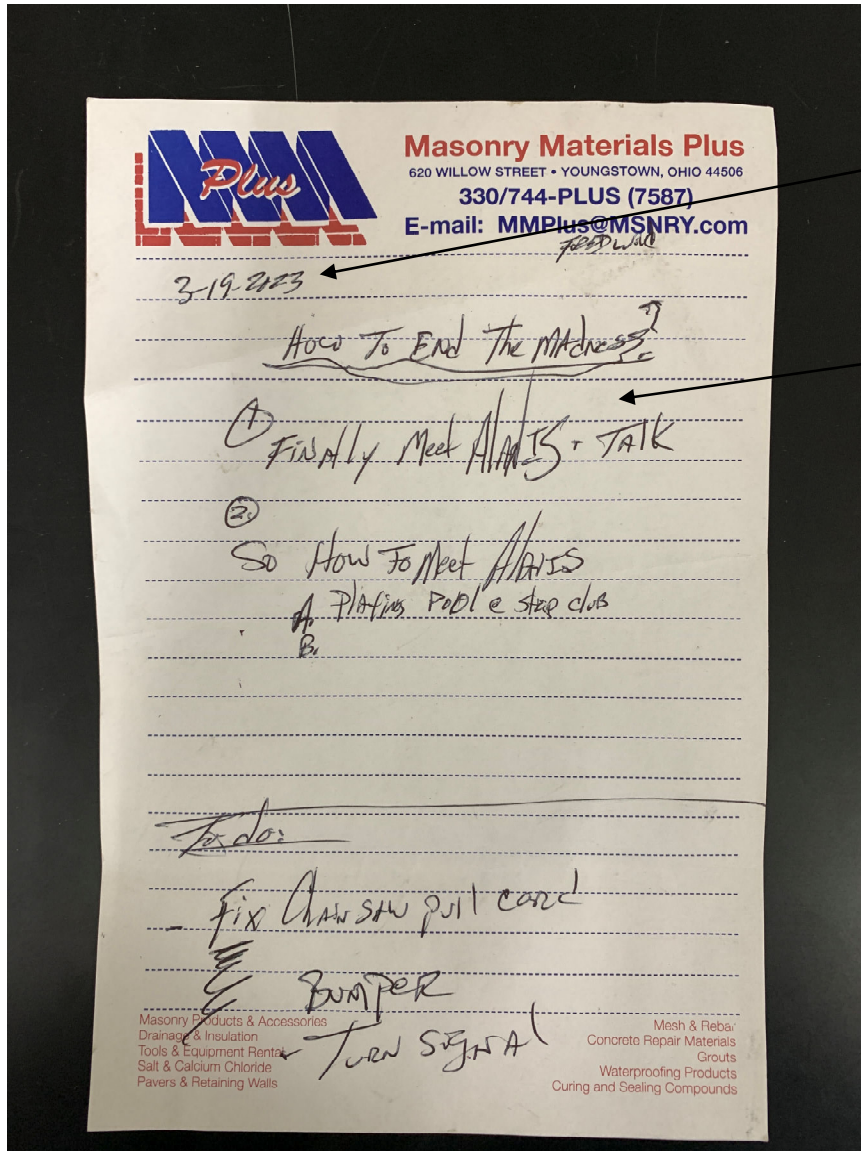 Plus
Masonry Materials Plus
620 WILLOW STREET • YOUNGSTOWN, OHIO 44506
330/744-PLUS (7587)
E-mail: MMPlus@MSNRY.com
3-19-2023
How To End The MAdness?
1
FinAlly Meet AlANIS + TAlK
2.
So How To Meet AlANIS
A. PlAying Pool @ club
B.
To do:
- Fix ChAinSAw pull cord
BUMPeR
- TuRN SigNAl
Masonry Products & Accessories
Drainage & Insulation
Tools & Equipment Rental
Salt & Calcium Chloride
Pavers & Retaining Walls
Mesh & Rebar
Concrete Repair Materials
Grouts
Waterproofing Products
Curing and Sealing Compounds